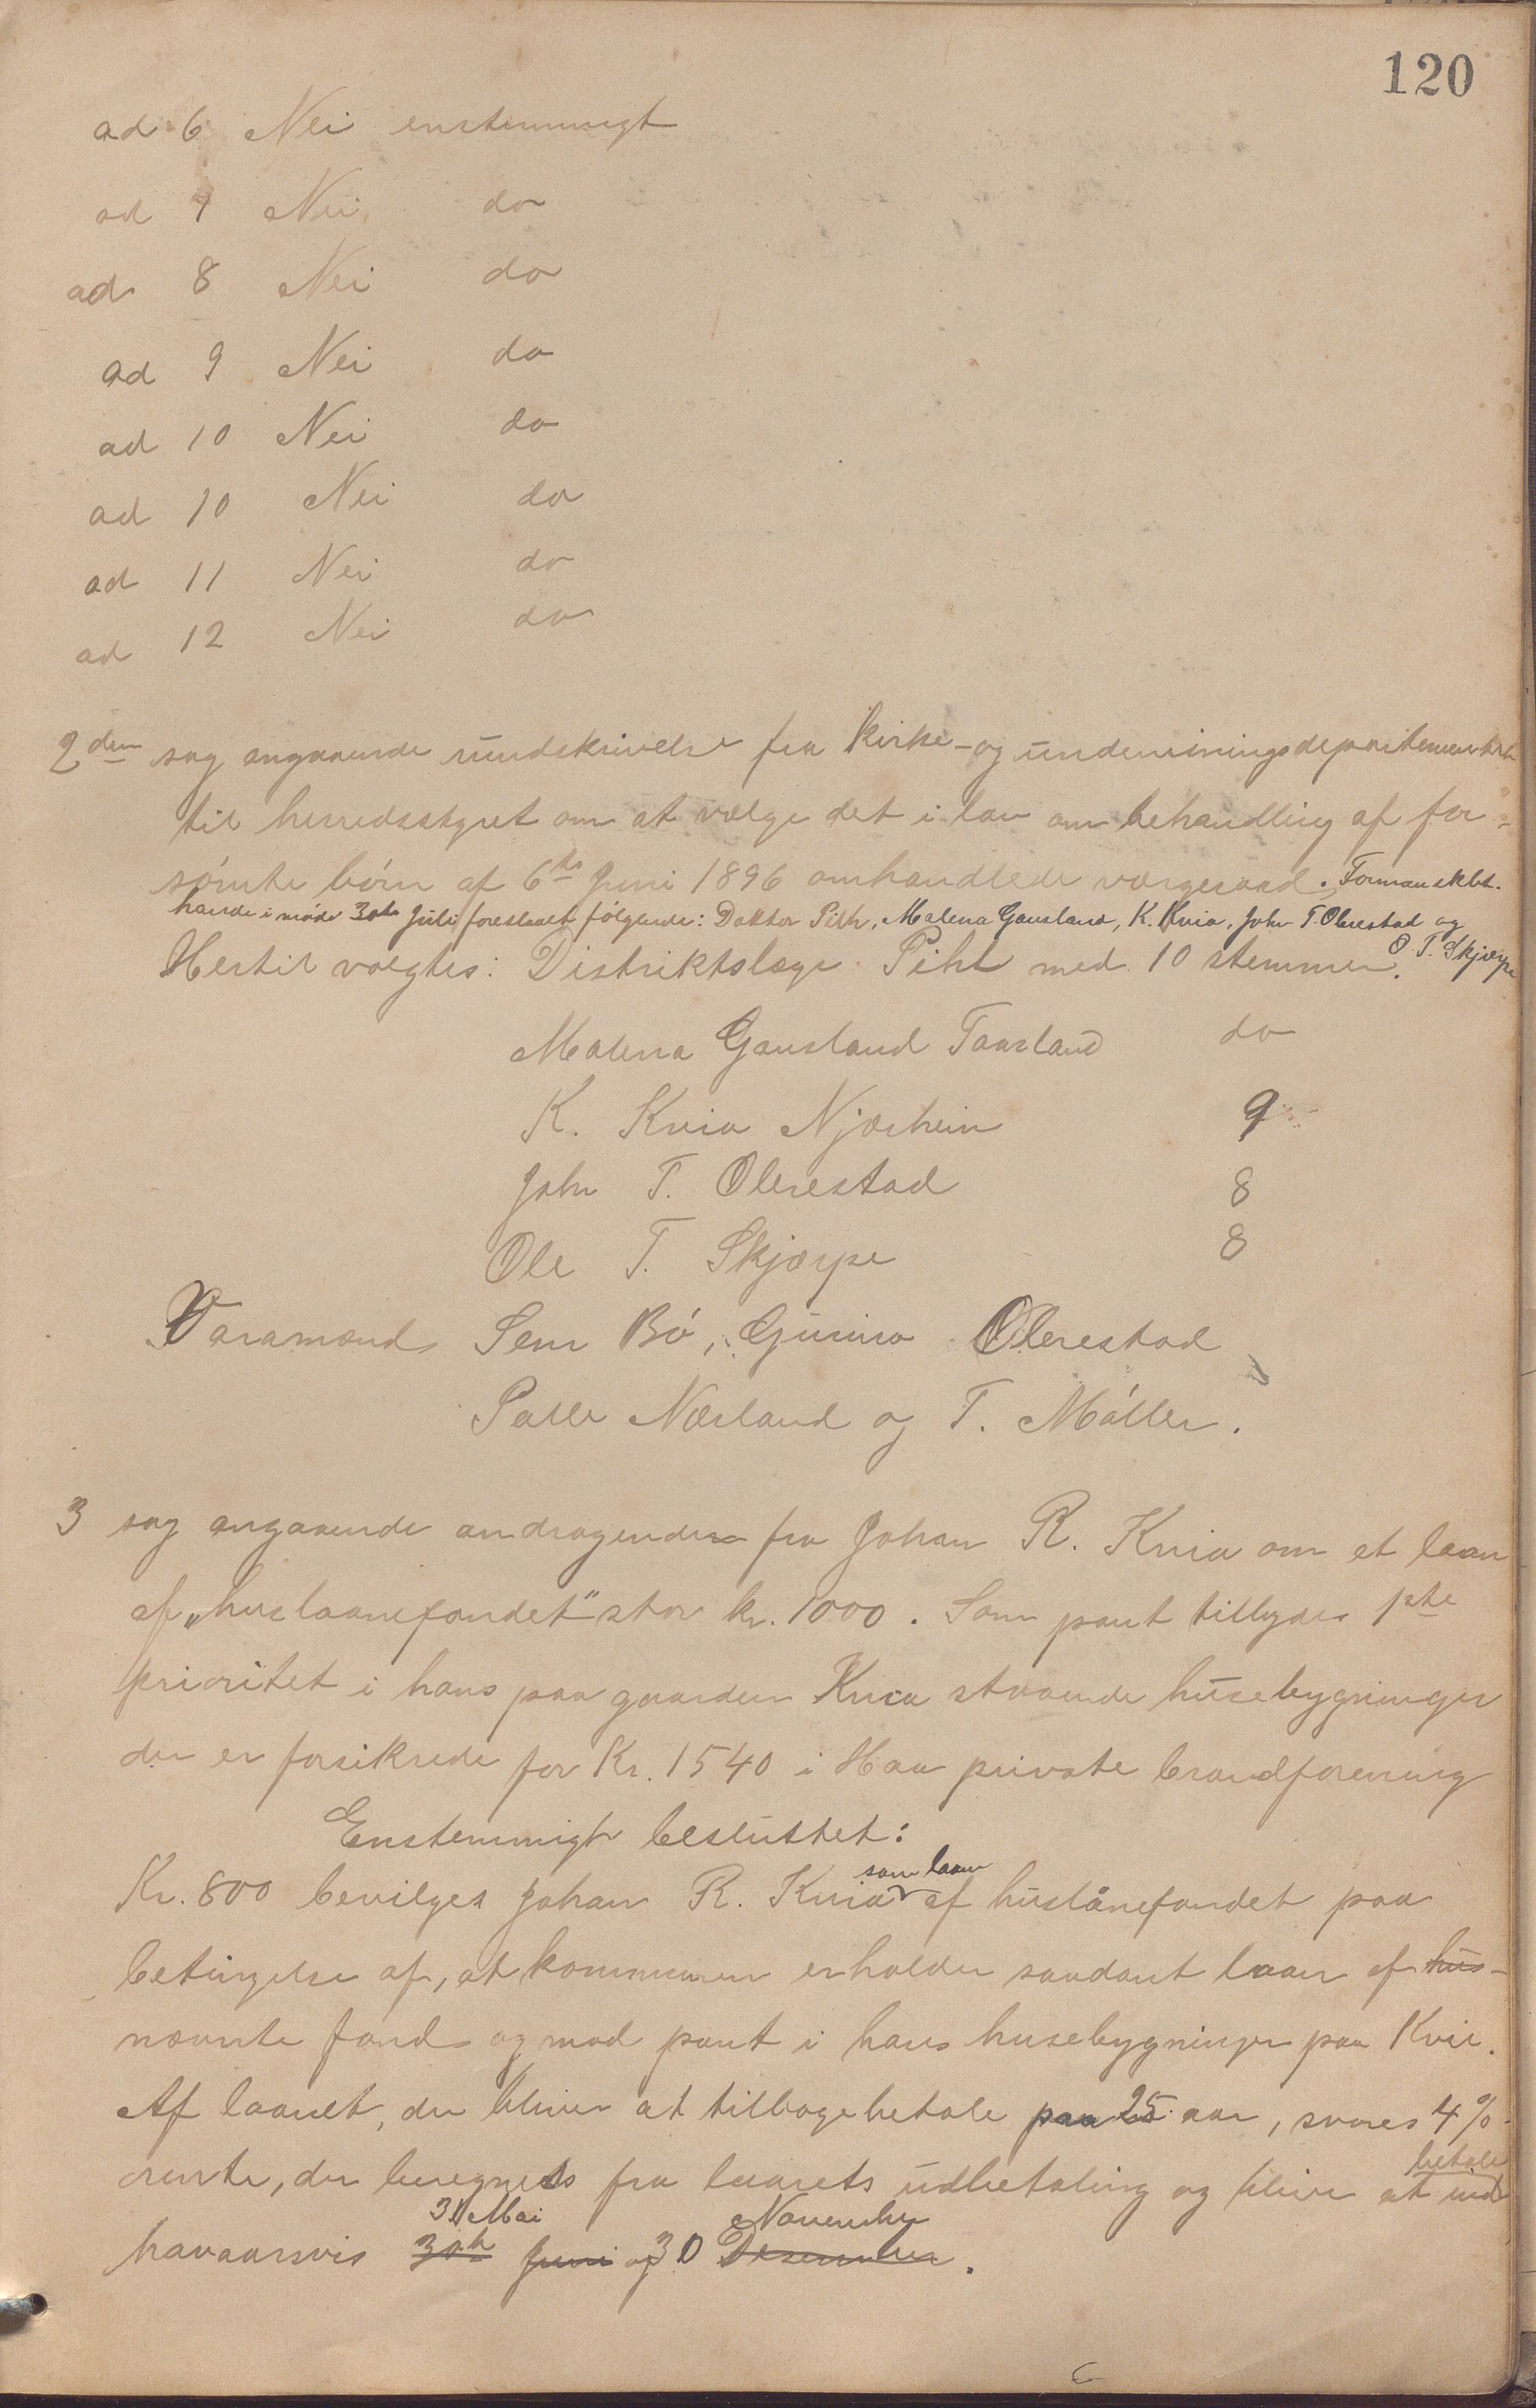 120
ad 6 Nei enstemmigt
ad 7 Nei do
ad 8 Nei do
ad 9 Nei do
ad 10 Nei do
ad 10 Nei do
ad 11 Nei do
ad 12 Nei do
2den sag angaaende rundskrivelse fra Kirke- og undervisningsdepartementet
til herredsstyret om at vælge det i lov om behandling af for-
sømte børn af 6te Juni 1896 omhandlede værgeraad. Formanskbt.
havde i møde 30te Juli foreslaaet følgende: Doktor Pihl, Malena Gausland, K. Kvia, John T. Obrestad og
O. T. Skjærpe
Hertil valgtes: Distriktslæge Pihl med 10 stemmer.
Malena Gausland Taarland do
K. Kvia Njærheim 9
John T. Obrestad 8
Ole T. Skjærpe 8
Varamænd Sem Bø, Gurina Obrestad
Salle Nærland og T. Møller.
3 sag angaaende andragende fra Johan R. Kvia om et laan
af „huslaanefondet" stor kr. 1000. Som pant tilbydes 1ste
prioritet i hans paa gaarden Kvia staaende husebygninger
der er forsikrede for Kr. 1540 i Haa private brandforening
Enstemmigt besluttet:
Kr. 800 bevilges Johan R. Kvia som laan af huslånefondet paa
betingelse af, at kommunen erholder saadant laan af hus-
nævnte fond og mod pant i hans husebygninger paa Kvie.
Af laanet, der bliver at tilbagebetale paa 25 aar, svares 4%
rente, der beregnets fra laanets udbetaling og bliver at ind
betale
31 Mai November
havaarsvis 30te Juni og 30 Desember.